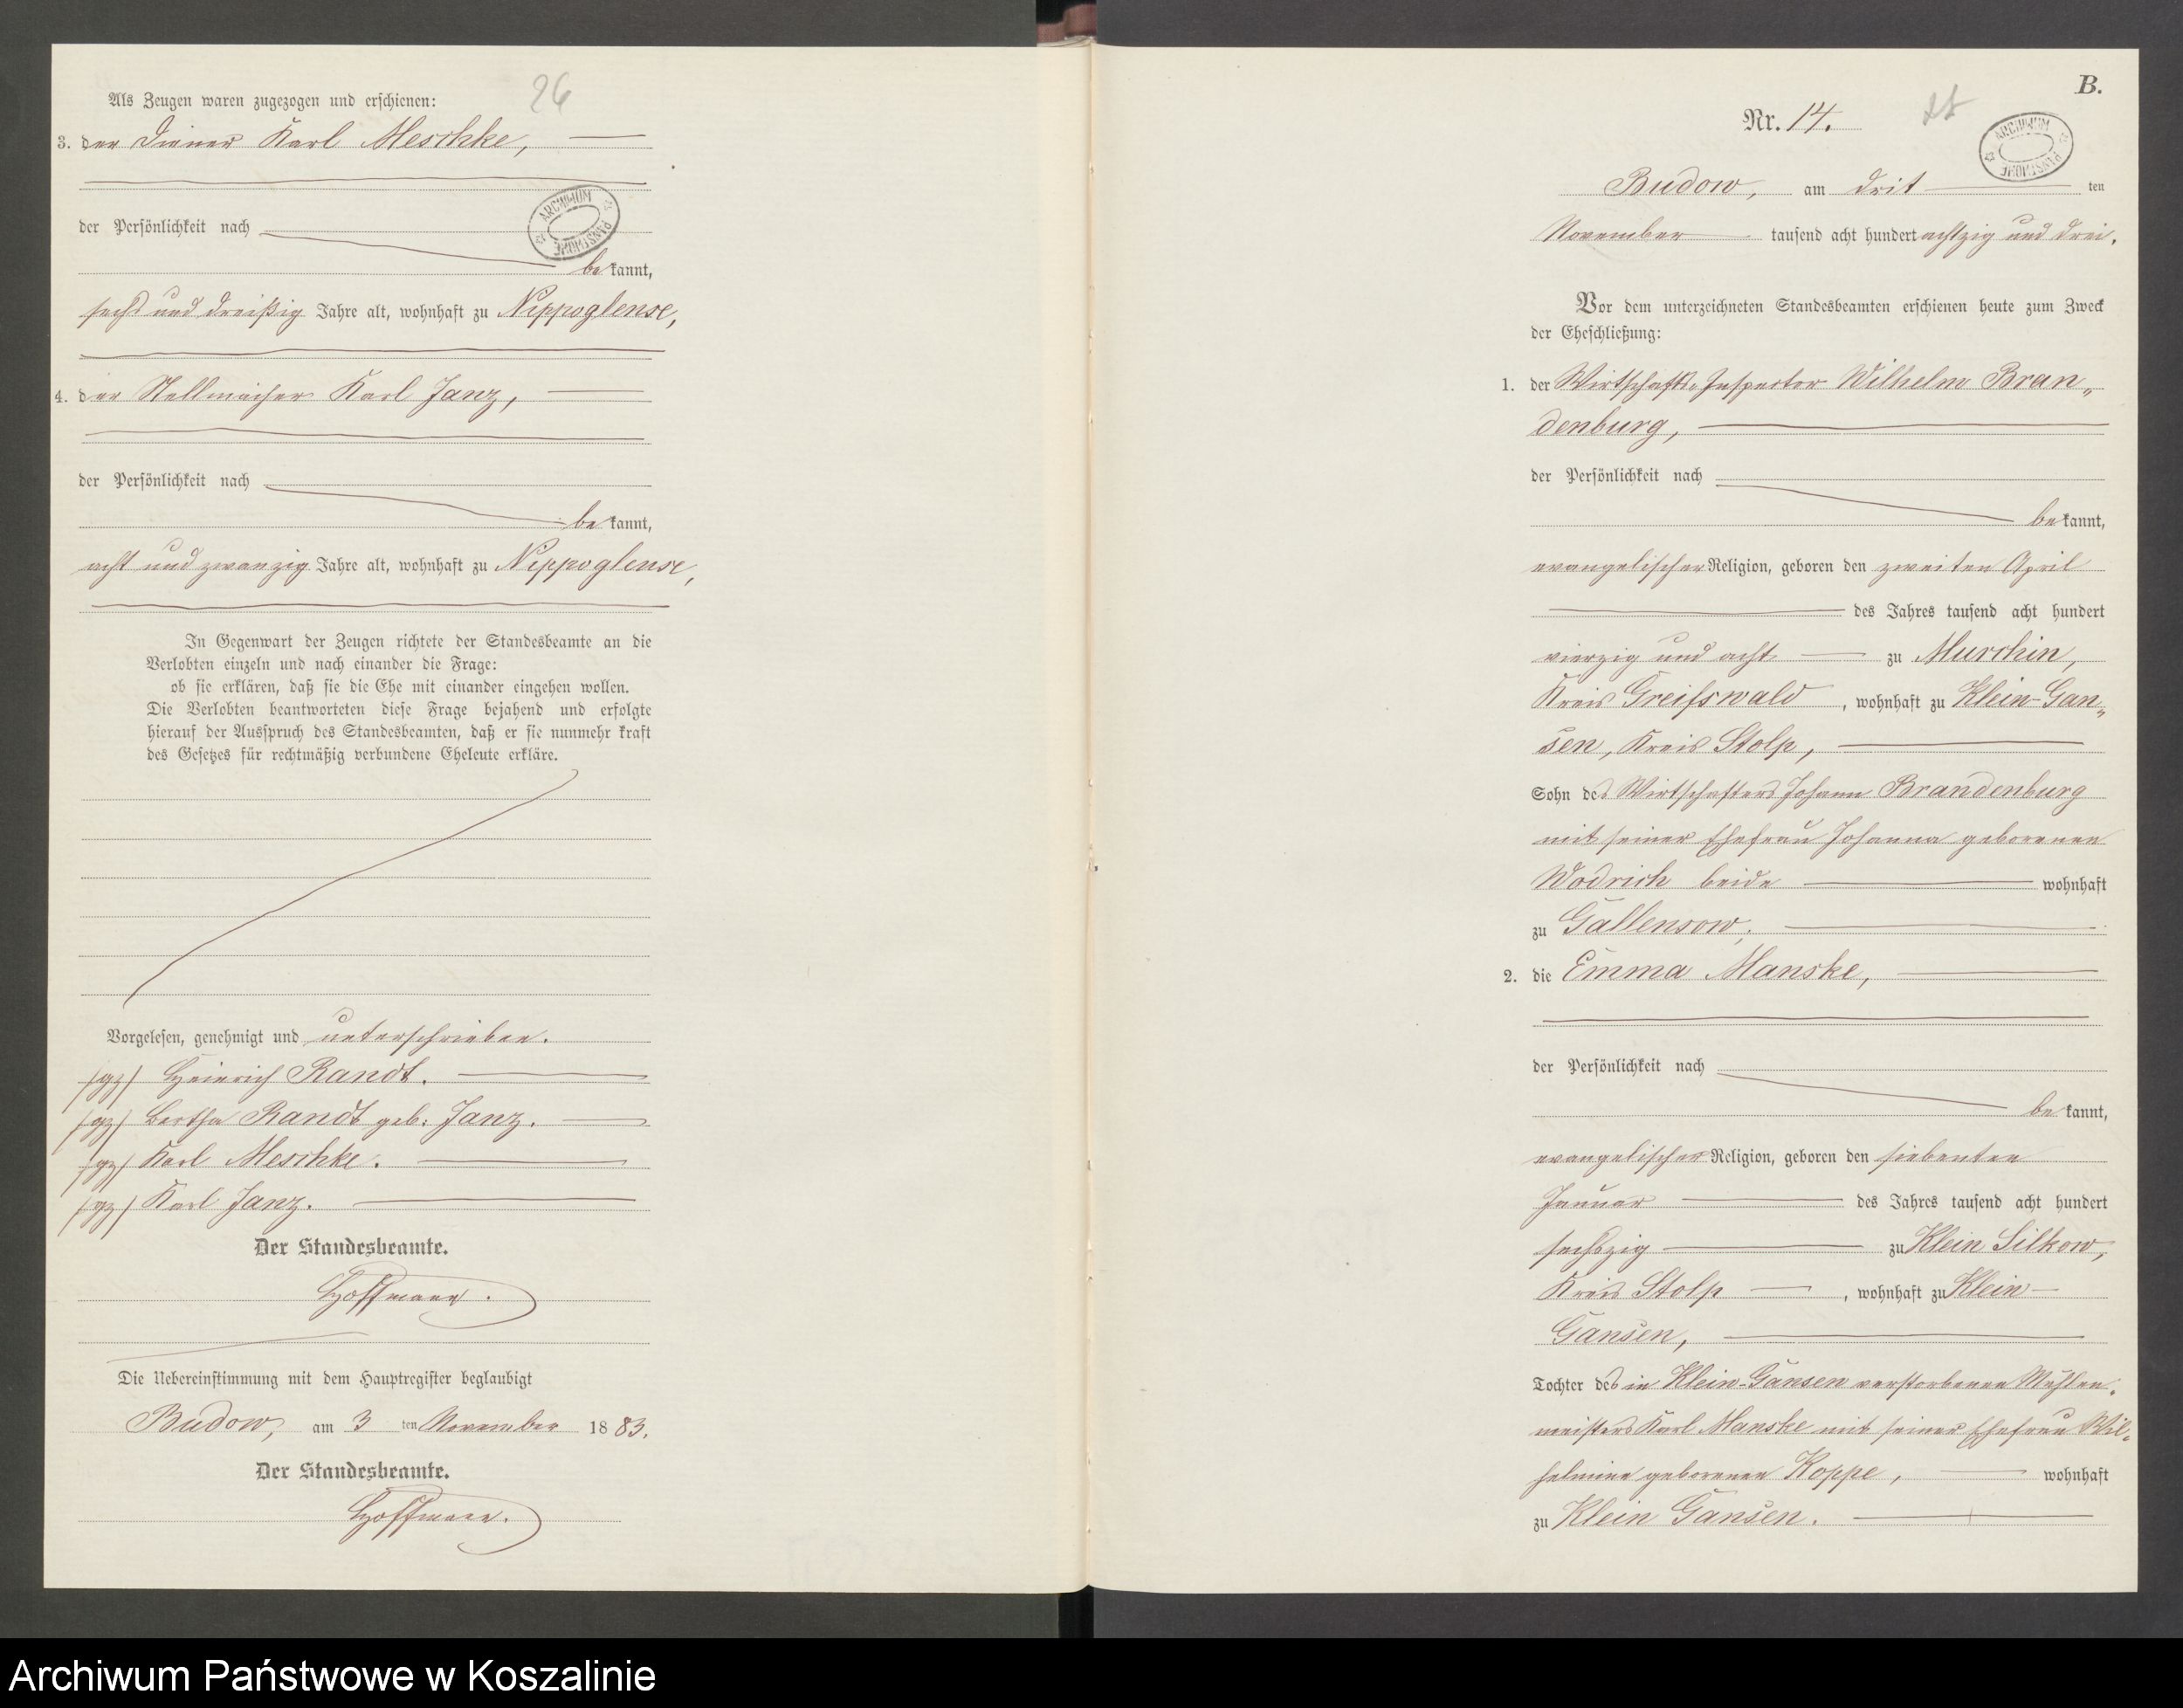 26
Als Zeugen waren zugezogen und erschienen:
3. der Diener Karl Meschke,
der Persönlichkeit nach
bekannt,
sechs und dreißig Jahre alt, wohnhaft zu Nippoglense,
4. der Stellmacher Karl Janz,
der Persönlichkeit nach
bekannt,
acht und zwanzig Jahre alt, wohnhaft zu Nippoglense,
In Gegenwart der Zeugen richtete der Standesbeamte an die
Verlobten einzeln und nach einander die Frage:
ob sie erklären, daß sie die Ehe mit einander eingehen wollen.
Die Verlobten beantworteten diese Frage bejahend und erfolgte
hierauf der Ausspruch des Standesbeamten, daß er sie nunmehr kraft
des Gesetzes für rechtmäßig verbundene Eheleute erkläre.
Vorgelesen, genehmigt und unterschrieben.
/gz/ Heinrich Randt.
/gz/ Bertha Randt geb. Janz.
/gz/ Karl Meschke.
/gz/ Karl Janz.
Der Standesbeamte.
Hoffmann.
Die Uebereinstimmung mit dem Hauptregister beglaubigt
Budow, am 3 ten November 1883.
Der Standesbeamte.
Hoffmann.
ARCHIWUM PAŃSTWOWE
B.
Nr. 14.
ARCHIWUM PAŃSTWOWE
Budow, am dritten
November tausend acht hundert achtzig und drei.
Vor dem unterzeichneten Standesbeamten erschienen heute zum Zweck
der Eheschließung:
1. der Wirtschafts-Inspector Wilhelm Bran-
denburg,
der Persönlichkeit nach
bekannt,
evangelischer Religion, geboren den zweiten April
des Jahres tausend acht hundert
vierzig und acht zu Murchin,
Kreis Greifswald, wohnhaft zu Klein-Gan-
sen, Kreis Stolp,
Sohn des Wirtschafters Johann Brandenburg
mit seiner Ehefrau Johanna geborenen
Wodrich beide wohnhaft
zu Gallensow;
2. die Emma Manske,
der Persönlichkeit nach
bekannt,
evangelischer Religion, geboren den siebenten
Januar des Jahres tausend acht hundert
sechszig zu Klein Silkow,
Kreis Stolp, wohnhaft zu Klein-
Gansen,
Tochter des in Klein-Gansen verstorbenen Mühlen-
meisters Karl Manske mit seiner Ehefrau Wil-
helmine geborenen Koppe, wohnhaft
zu Klein Gansen.
Archiwum Państwowe w Koszalinie